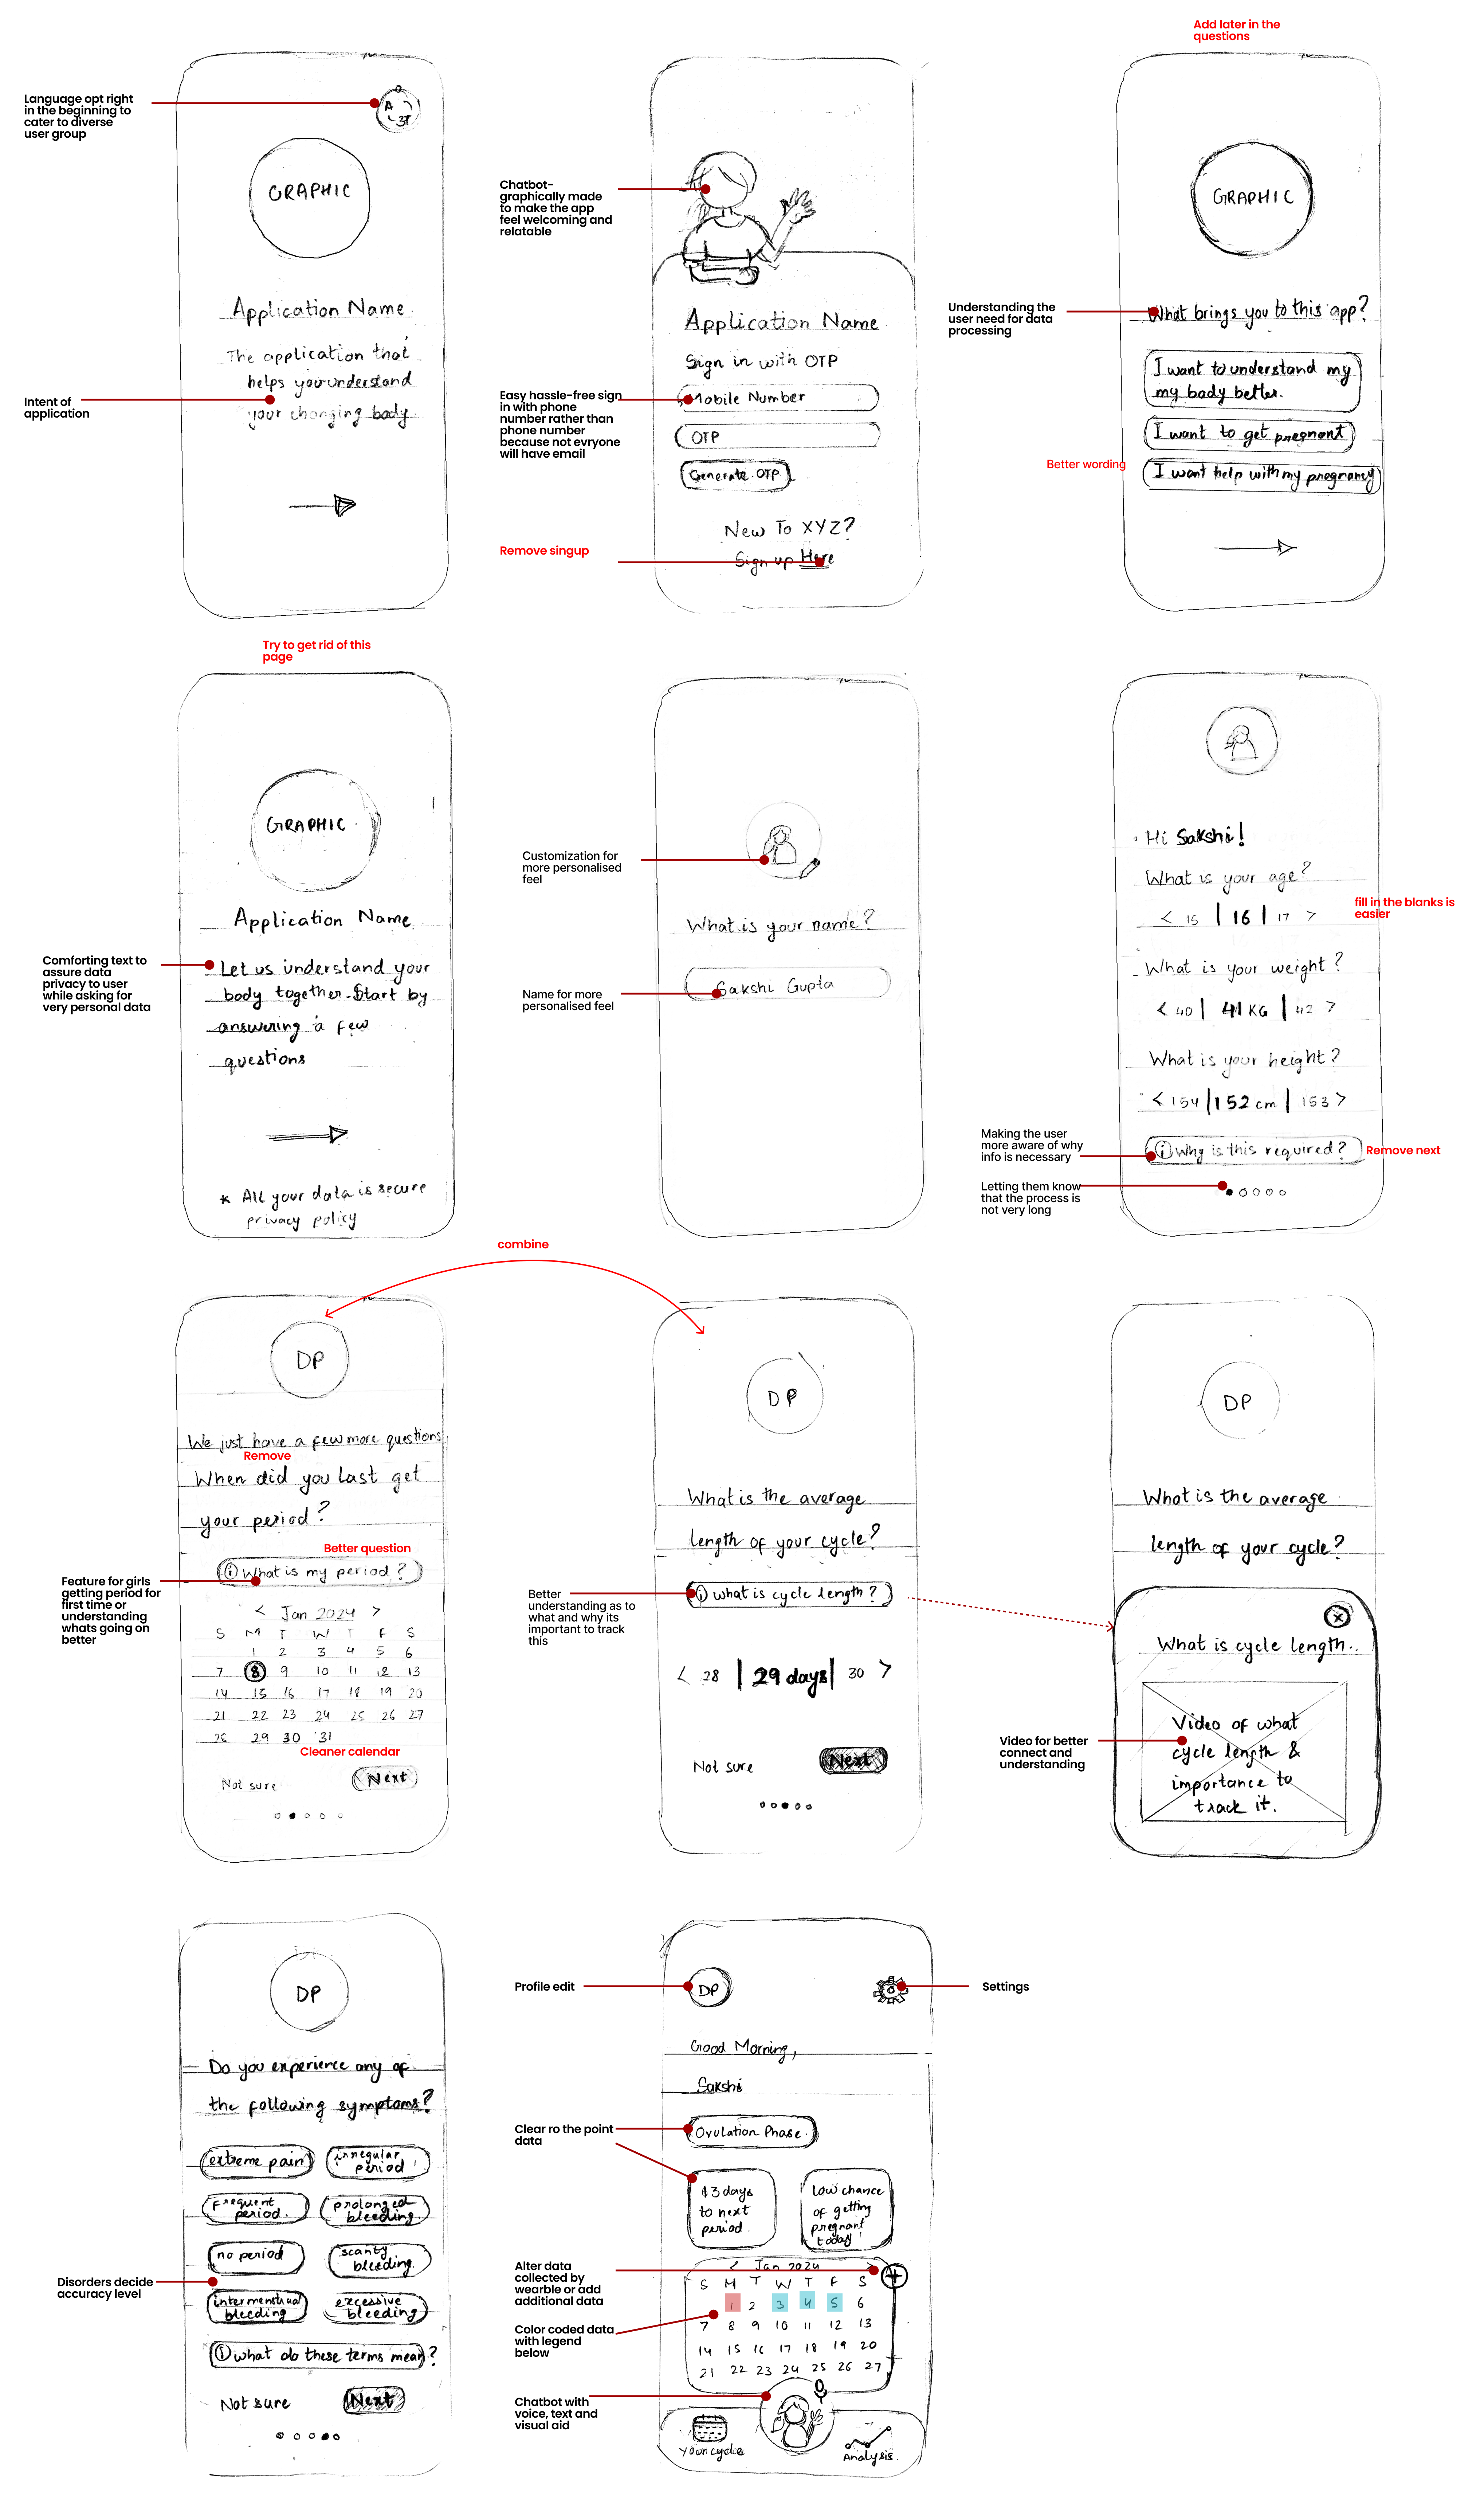 Add later in the
questions
Language opt right
in the beginning to
cater to diverse
user group
A
GRAPHIC
Application Name
The application that
helps you understand
your changing body
Intent of
application
Chatbot-
graphically made
to make the app
feel welcoming and
relatable
Application Name
Sign in with OTP
Easy hassle-free sign
in with phone
number rather than
phone number
because not evryone
will have email
Mobile Number
OTP
Generate OTP
New To XYZ?
Remove singup
Sign up Here
GRAPHIC
Understanding the
user need for data
processing
What brings you to this app?
I want to understand my
my body better.
I want to get pregnant
Better wording
I want help with my pregnancy
Try to get rid of this
page
GRAPHIC
Application Name
Comforting text to
assure data
privacy to user
while asking for
very personal data
Let us understand your
body together. Start by
answering a few
questions
* All your data is secure
privacy policy
Customization for
more personalised
feel
What is your name?
Name for more
personalised feel
Sakshi Gupta
Hi Sakshi!
What is your age?
fill in the blanks is
easier
< 15 | 16 | 17 >
What is your weight?
< 40 | 41 KG | 42 >
What is your height?
< 154 | 152 cm | 153 >
Making the user
more aware of why
info is necessary
i Why is this required?
Remove next
Letting them know
that the process is
not very long
combine
DP
We just have a few more questions
Remove
When did you last get
your period?
Better question
i What is my period?
Feature for girls
getting period for
first time or
understanding
whats going on
better
< Jan 2024 >
S M T W T F S
1 2 3 4 5 6
7 8 9 10 11 12 13
14 15 16 17 18 19 20
21 22 23 24 25 26 27
28 29 30 31
Cleaner calendar
Not sure
Next
DP
What is the average
length of your cycle?
Better
understanding as to
what and why its
important to track
this
i what is cycle length?
< 28 | 29 days | 30 >
Not sure
Next
DP
What is the average
length of your cycle?
What is cycle length..
Video for better
connect and
understanding
Video of what
cycle length &
importance to
track it.
DP
Do you experience any of
the following symptoms?
extreme pain
irregular
period
frequent
period.
prolonged
bleeding.
no period
scanty
bleeding
Disorders decide
accuracy level
intermenstrual
bleeding
excessive
bleeding
i what do these terms mean?
Not sure
Next
Profile edit
DP
Settings
Good Morning,
Sakshi
Clear ro the point
data
Ovulation Phase.
13 days
to next
period.
Low chance
of getting
pregnant
today
Alter data
collected by
wearble or add
additional data
< Jan 2024
S M T W T F S
1 2 3 4 5 6
7 8 9 10 11 12 13
14 15 16 17 18 19 20
21 22 23 24 25 26 27
Color coded data
with legend
below
Chatbot with
voice, text and
visual aid
Your cycle
Analysis.